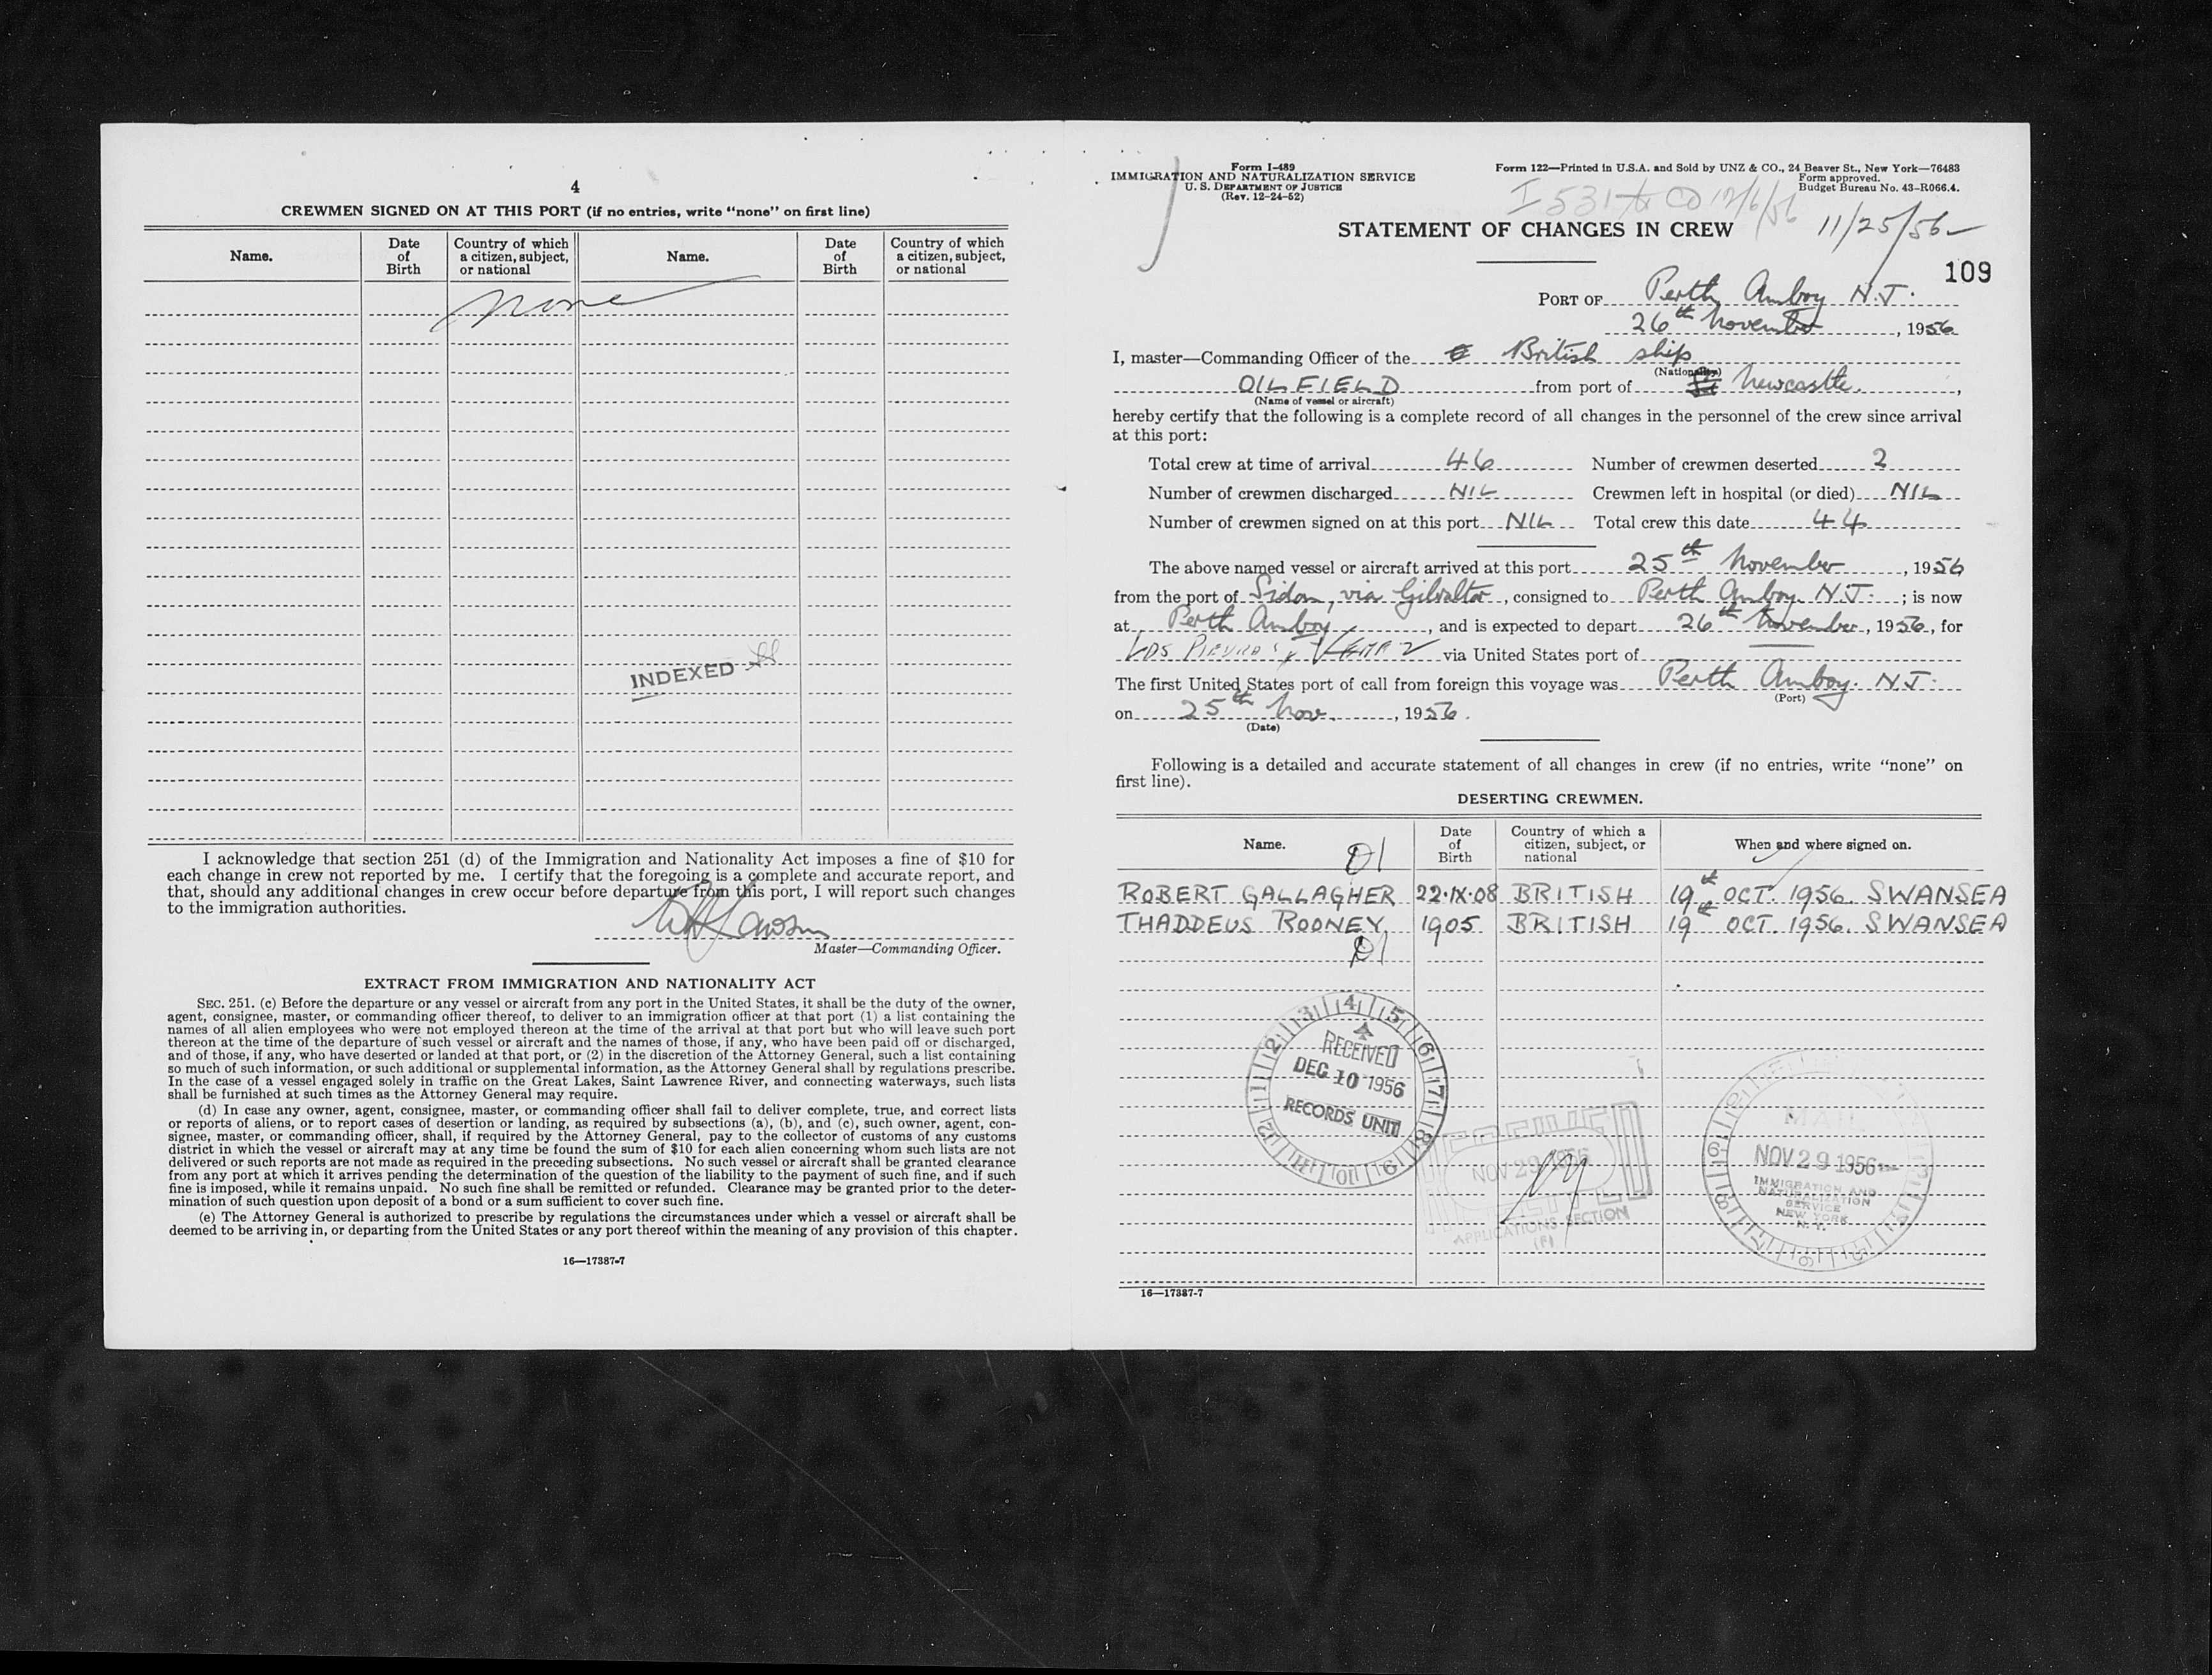 4
CREWMEN SIGNED ON AT THIS PORT (if no entries, write “none” on first line)
Name. Date of Birth Country of which a citizen, subject, or national Name. Date of Birth Country of which a citizen, subject, or national
none
INDEXED
I acknowledge that section 251 (d) of the Immigration and Nationality Act imposes a fine of $10 for
each change in crew not reported by me. I certify that the foregoing is a complete and accurate report, and
that, should any additional changes in crew occur before departure from this port, I will report such changes
to the immigration authorities.
Lawson
Master—Commanding Officer.
EXTRACT FROM IMMIGRATION AND NATIONALITY ACT
SEC. 251. (c) Before the departure or any vessel or aircraft from any port in the United States, it shall be the duty of the owner,
agent, consignee, master, or commanding officer thereof, to deliver to an immigration officer at that port (1) a list containing the
names of all alien employees who were not employed thereon at the time of the arrival at that port but who will leave such port
thereon at the time of the departure of such vessel or aircraft and the names of those, if any, who have been paid off or discharged,
and of those, if any, who have deserted or landed at that port, or (2) in the discretion of the Attorney General, such a list containing
so much of such information, or such additional or supplemental information, as the Attorney General shall by regulations prescribe.
In the case of a vessel engaged solely in traffic on the Great Lakes, Saint Lawrence River, and connecting waterways, such lists
shall be furnished at such times as the Attorney General may require.
(d) In case any owner, agent, consignee, master, or commanding officer shall fail to deliver complete, true, and correct lists
or reports of aliens, or to report cases of desertion or landing, as required by subsections (a), (b), and (c), such owner, agent, con-
signee, master, or commanding officer, shall, if required by the Attorney General, pay to the collector of customs of any customs
district in which the vessel or aircraft may at any time be found the sum of $10 for each alien concerning whom such lists are not
delivered or such reports are not made as required in the preceding subsections. No such vessel or aircraft shall be granted clearance
from any port at which it arrives pending the determination of the question of the liability to the payment of such fine, and if such
fine is imposed, while it remains unpaid. No such fine shall be remitted or refunded. Clearance may be granted prior to the deter-
mination of such question upon deposit of a bond or a sum sufficient to cover such fine.
(e) The Attorney General is authorized to prescribe by regulations the circumstances under which a vessel or aircraft shall be
deemed to be arriving in, or departing from the United States or any port thereof within the meaning of any provision of this chapter.
16—17387-7
Form I-489
IMMIGRATION AND NATURALIZATION SERVICE
U. S. DEPARTMENT OF JUSTICE
(Rev. 12-24-52)
Form 122—Printed in U.S.A. and Sold by UNZ & CO., 24 Beaver St., New York—76483
Form approved.
Budget Bureau No. 43-R066.4.
I 531 CO 12/6/56
STATEMENT OF CHANGES IN CREW
11/25/56
109
PORT OF Perth Amboy N.J.
26th November, 1956
I, master—Commanding Officer of the British ship
(Nationality)
OILFIELD from port of Newcastle,
(Name of vessel or aircraft)
hereby certify that the following is a complete record of all changes in the personnel of the crew since arrival
at this port:
Total crew at time of arrival 46 Number of crewmen deserted 2
Number of crewmen discharged NIL Crewmen left in hospital (or died) NIL
Number of crewmen signed on at this port NIL Total crew this date 44
The above named vessel or aircraft arrived at this port 25th November, 1956
from the port of Sidon, via Gibraltar, consigned to Perth Amboy N.J. ; is now
at Perth Amboy, and is expected to depart 26th November, 1956, for
via United States port of
The first United States port of call from foreign this voyage was Perth Amboy. N.J.
(Port)
on 25th Nov., 1956.
(Date)
Following is a detailed and accurate statement of all changes in crew (if no entries, write “none” on
first line).
DESERTING CREWMEN.
Name. Date of Birth Country of which a citizen, subject, or national When and where signed on.
D1
ROBERT GALLAGHER 22·IX·08 BRITISH 19th OCT. 1956. SWANSEA
THADDEUS ROONEY 1905 BRITISH 19th OCT. 1956. SWANSEA
D1
RECEIVED
DEC 10 1956
RECORDS UNIT
NOV 29 1956
APPLICATIONS SECTION
(F)
MAIL
NOV 29 1956
IMMIGRATION AND
NATURALIZATION
SERVICE
NEW YORK
N. Y.
16—17387-7